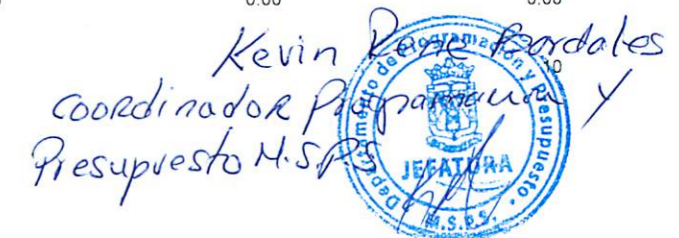 0.00 0.00
Kevin Rene Bardales
10
Coordinador Programacion y
Presupuesto M.S.P.S
Departamento de Programacion y Presupuesto.
JEFATURA
M.S.P.S.